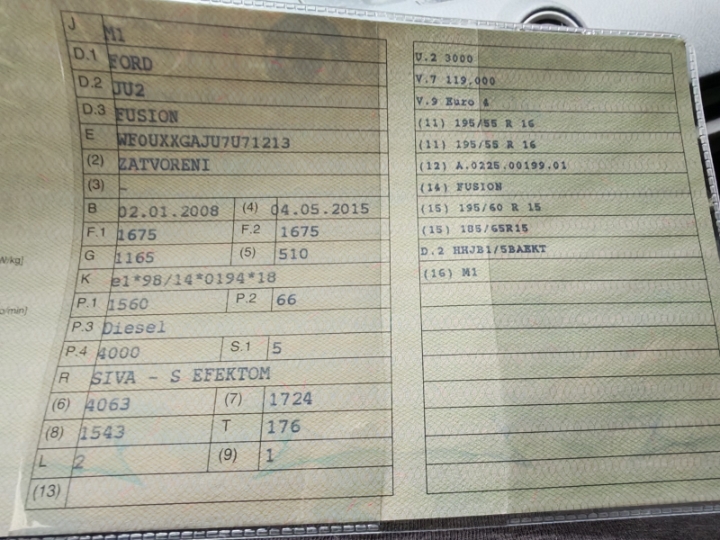 J M1
D.1 FORD
D.2 JU2
D.3 FUSION
E WF0UXXGAJU7U71213
(2) ZATVORENI
(3) -
B 02.01.2008 (4) 04.05.2015
F.1 1675 F.2 1675
G 1165 (5) 510
K e1*98/14*0194*18
P.1 1560 P.2 66
P.3 Diesel
P.4 4000 S.1 5
R SIVA - S EFEKTOM
(6) 4063 (7) 1724
(8) 1543 T 176
L 2 (9) 1
(13)
U.2 3000
V.7 119.000
V.9 Euro 4
(11) 195/55 R 16
(11) 195/55 R 16
(12) A.0225.00199.01
(14) FUSION
(15) 195/60 R 15
(15) 185/65R15
D.2 HHJB1/5BAEKT
(16) M1